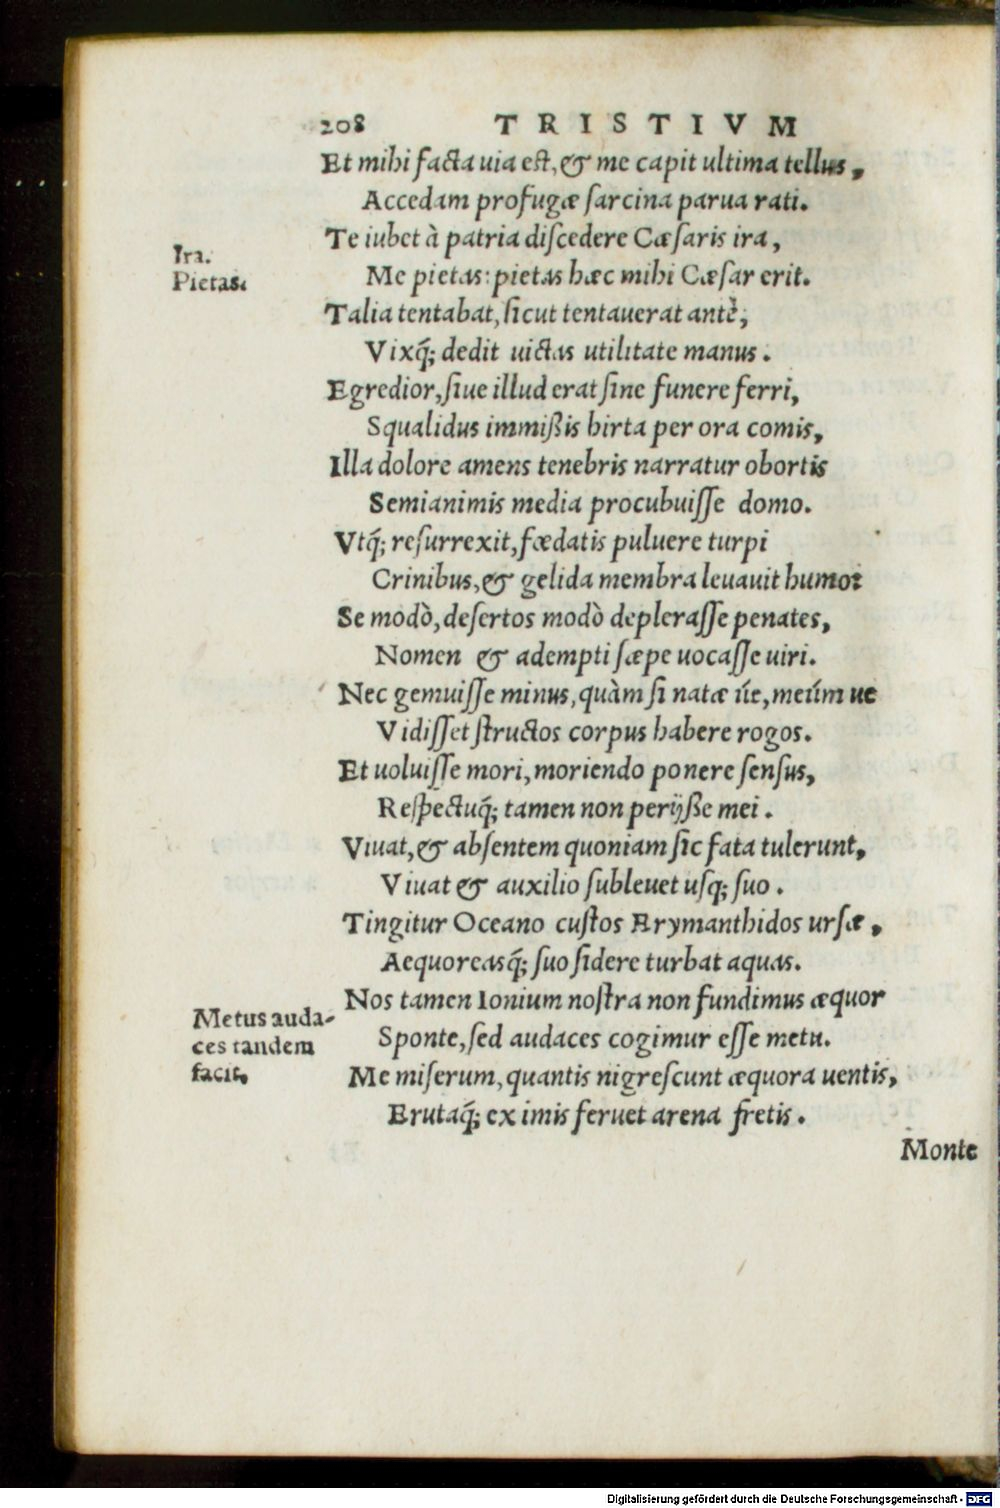 208 TRISTIVM
Et mihi facta uia est, & me capit ultima tellus,
Accedam profugæ sarcina parua rati.
Te iubet à patria discedere Cæsaris ira,
Ira.
Pietas.
Me pietas: pietas hæc mihi Cæsar erit.
Talia tentabat, sicut tentauerat antè,
Vixq́; dedit uictas utilitate manus.
Egredior, siue illud erat sine funere ferri,
Squalidus immißis hirta per ora comis,
Illa dolore amens tenebris narratur obortis
Semianimis media procubuisse domo.
Vtq́; resurrexit, fœdatis puluere turpi
Crinibus, & gelida membra leuauit humo:
Se modò, desertos modò deplerasse penates,
Nomen & adempti sæpe uocasse uiri.
Nec gemuisse minus, quàm si natæ úe, meúm ue
Vidisset structos corpus habere rogos.
Et uoluisse mori, moriendo ponere sensus,
Respectuq́; tamen non perijße mei.
Viuat, & absentem quoniam sic fata tulerunt,
Viuat & auxilio subleuet usq; suo.
Tingitur Oceano custos Erymanthidos ursæ,
Aequoreasq́; suo sidere turbat aquas.
Nos tamen Ionium nostra non fundimus æquor
Metus auda-
ces tandem
facit.
Sponte, sed audaces cogimur esse metu.
Me miserum, quantis nigrescunt æquora uentis,
Erutaq́; ex imis feruet arena fretis.
Monte
Digitalisierung gefördert durch die Deutsche Forschungsgemeinschaft - DFG